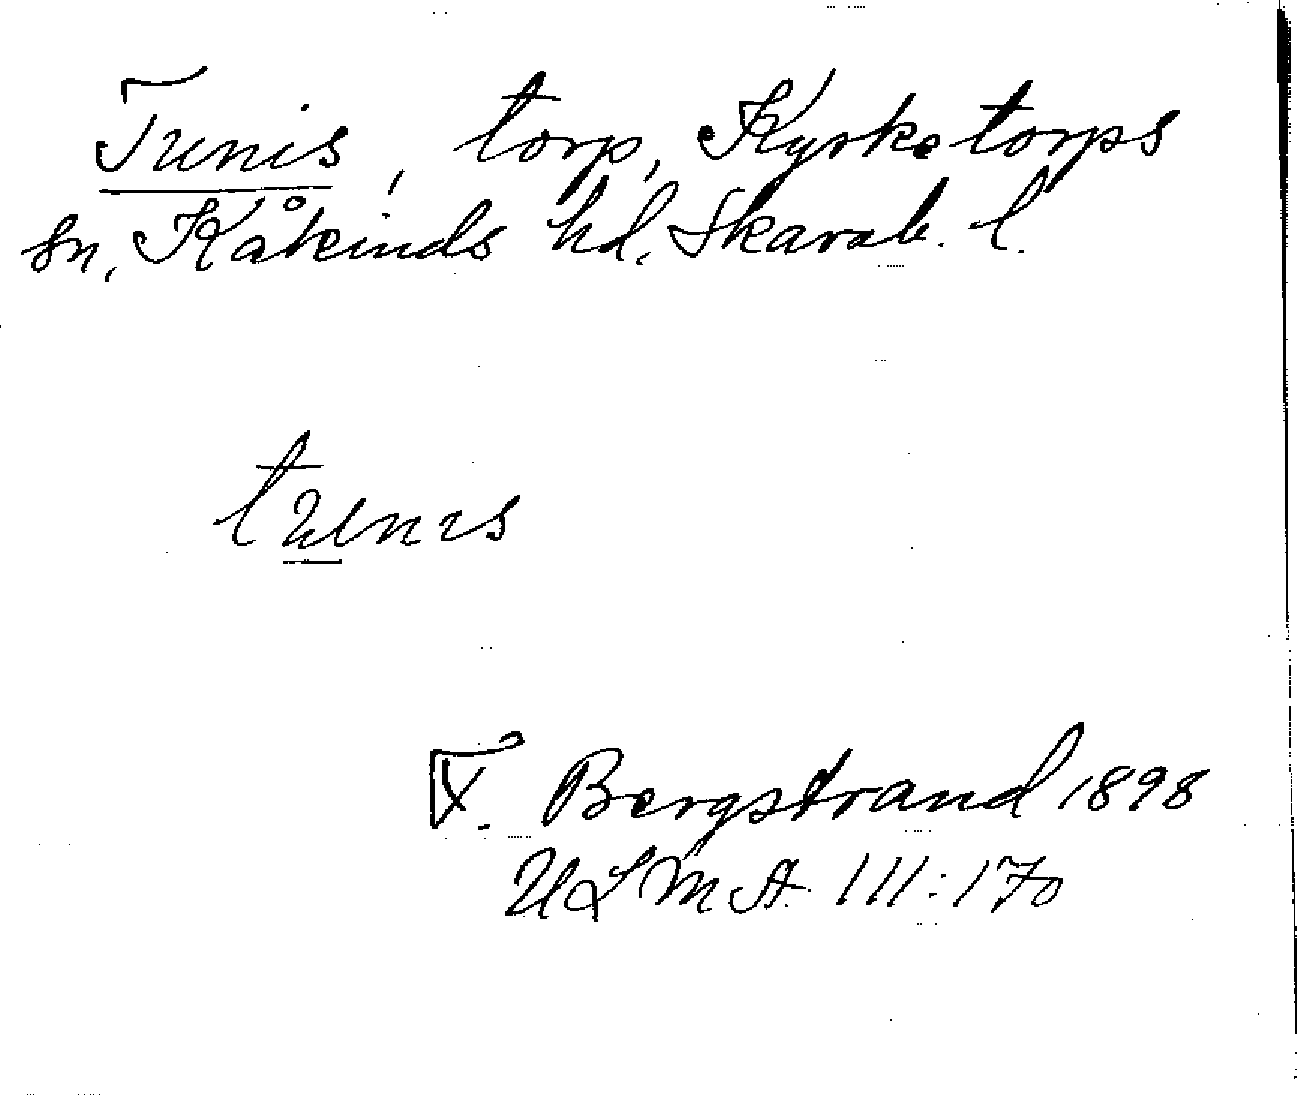 Tunis, torp, Kyrketorps
sn, Kåkinds hd. Skarab. l.
tunis
F. Bergstrand 1898
ULMA 111:170